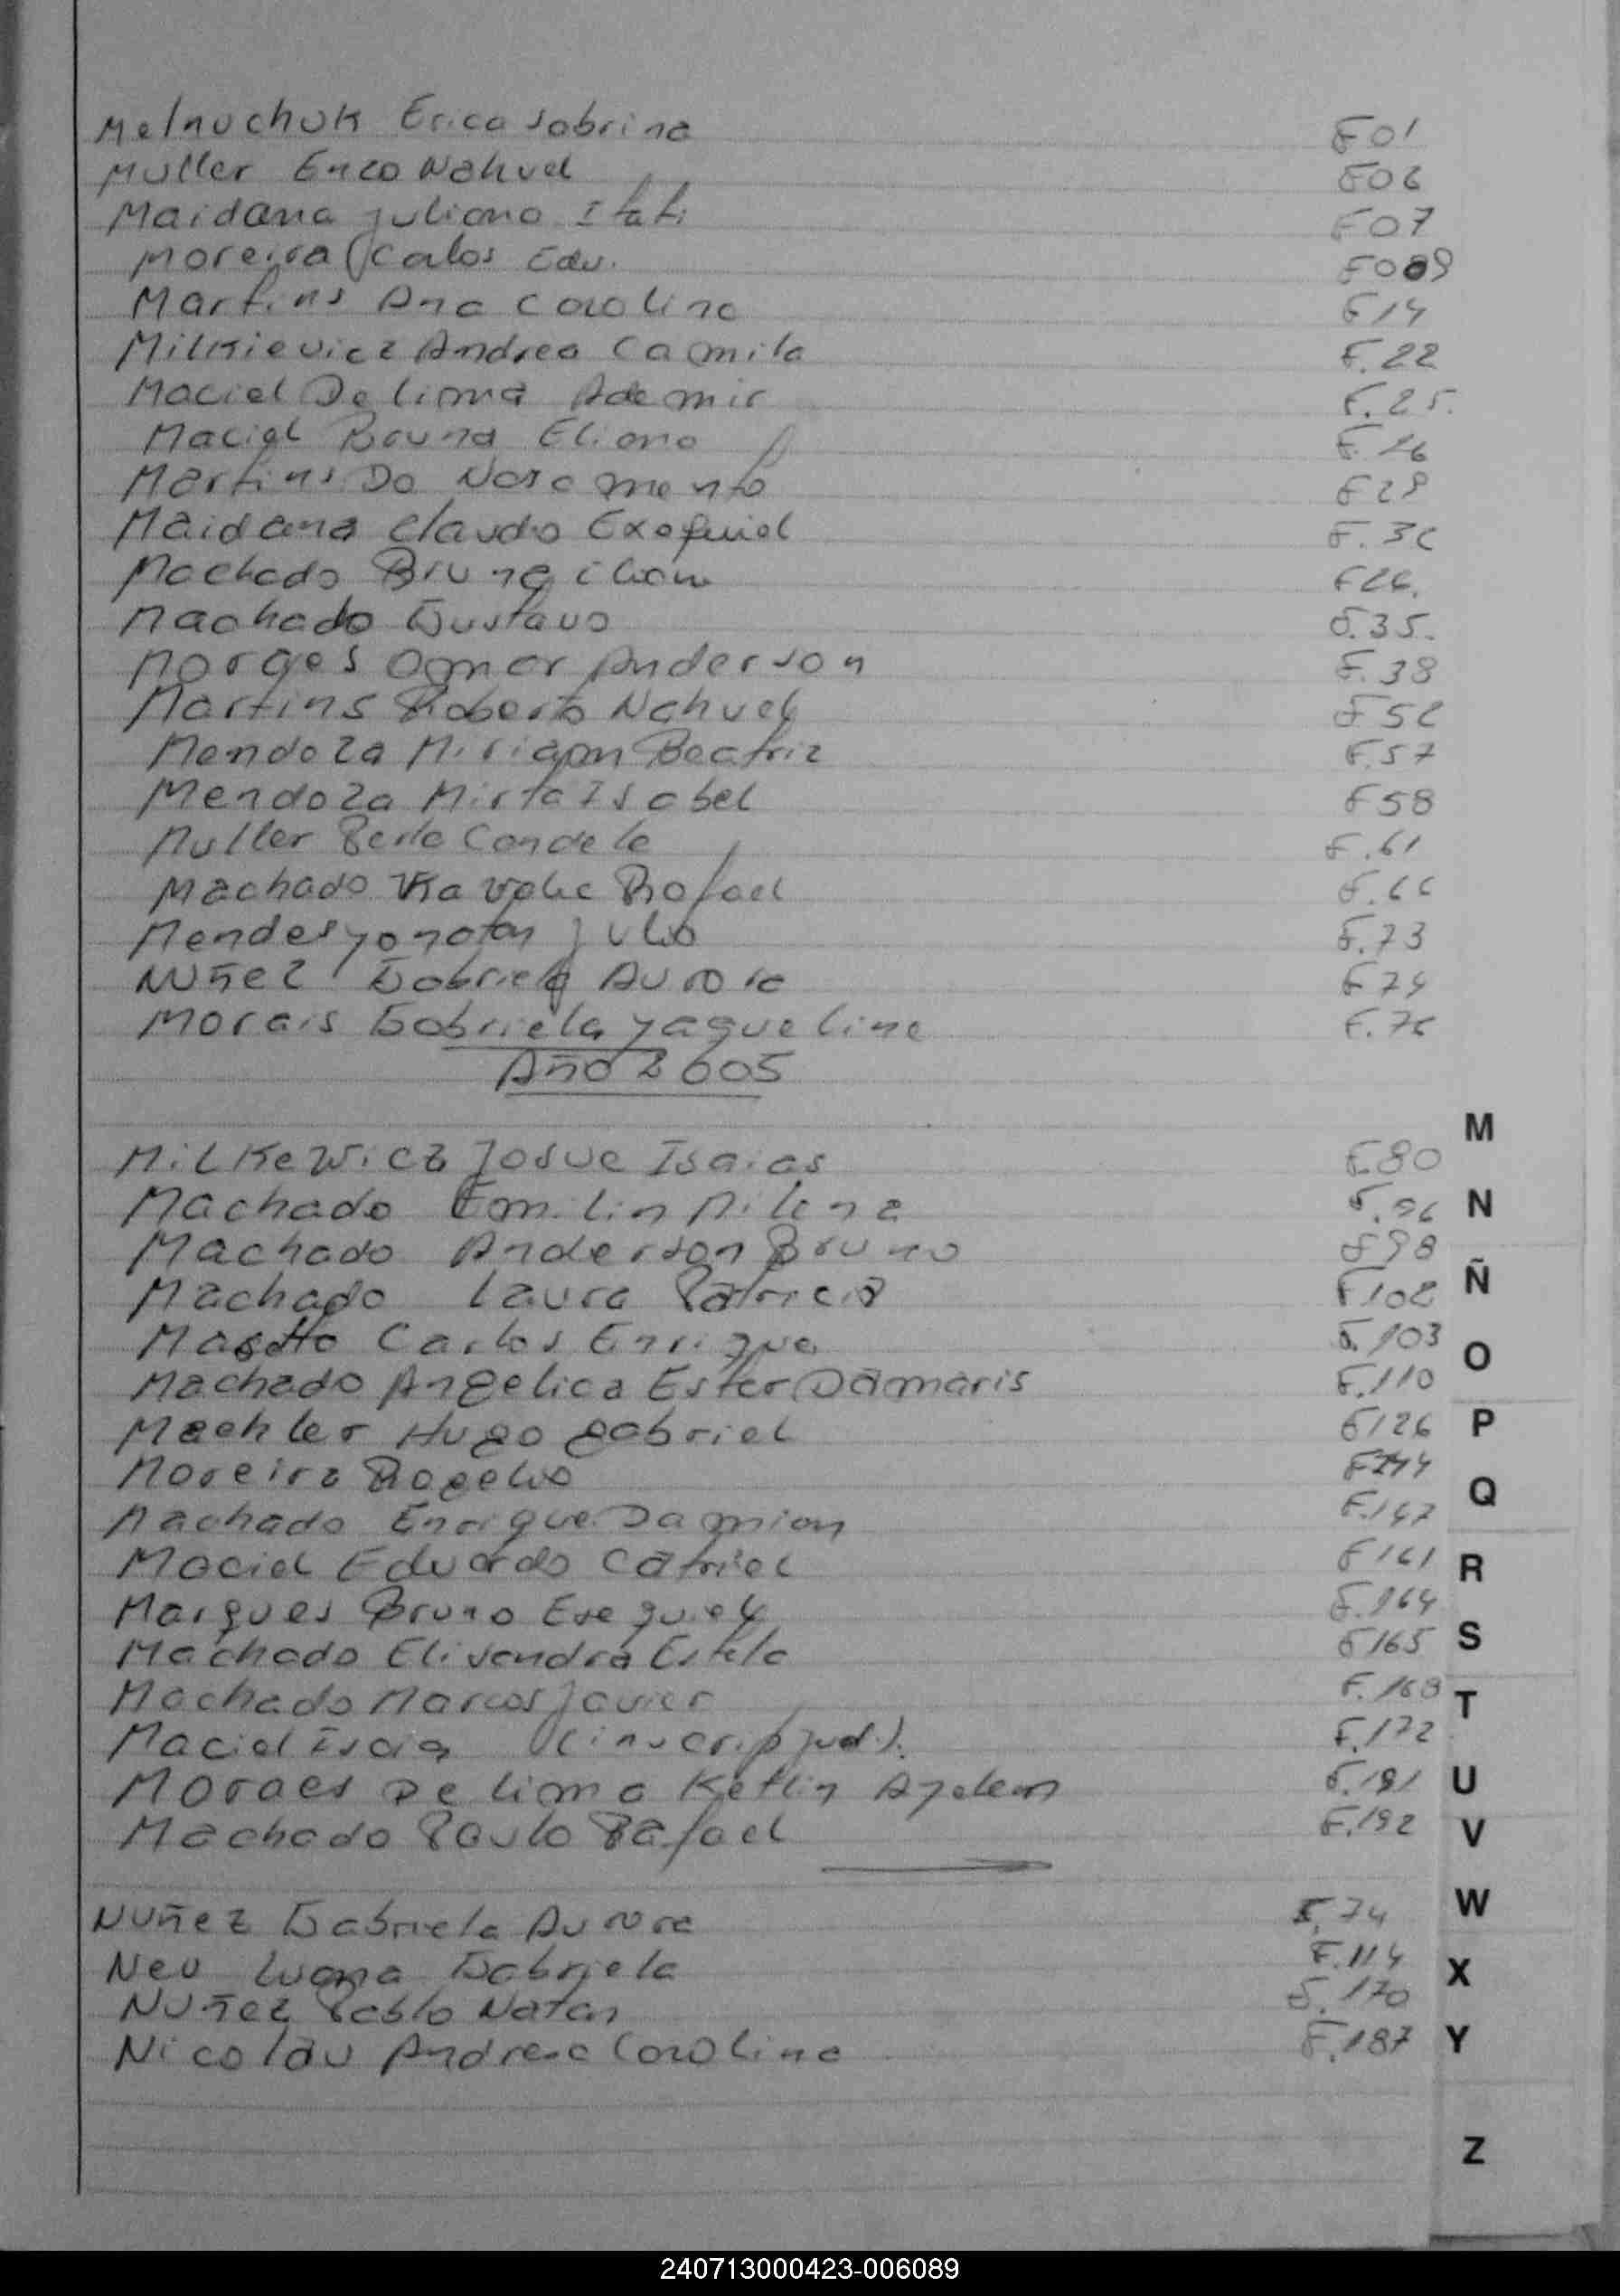 Melnuchuk Erica Sabrina F01
Muller Enzo Nahuel F06
Maidana Juliana Itati F07
Moreira Carlos Edu. F009
Martins Ana Carolina F14
Milkievicz Andrea Camila F.22
Maciel De lima Ademir F.25.
Maciel Bruna Eliana F.16
Martins Do Nascimento F29
Maidana Claudio Exequiel F.3C
Machado Bruna F26.
Machado Gustavo F.35.
Morges Omar Anderson F.38
Martins Roberto Nahuel F52
Mendoza Miriam Beatriz F.57
Mendoza Mirta Isabel F58
Muller Perla Candela F.61
Machado Rafael F.66
Mendes yonatan Julio F.73
NUñez Gabriela Aurora F74
Morais Gabriela yaqueline F.76
Año 2005
M
MilKewicz Josue Isaias F.80
Machado Emilin Milena F.96 N
Machado Anderson Bruno F98
Machado Laura Patricia F102 Ñ
Carlos Enrique F.103
O
Machado Angelica Ester Damaris F.110
Maehler Hugo gabriel F126 P
Moreira Rogelio F144
Q
Machado Enrique Damian F.147
Maciel Eduardo Catriel F161 R
Marques Bruno Esequiel F.164
Machado Elisandra Estela F165 S
Machado Marcos Javier F.168 T
Maciel Isaias (inscrip Jud.). F.172
Moraes De lima Ketlin Ayelen F.181 U
Machado Paulo Rafael F.192 V
W
Nuñez Gabriela Aurora F.74
Neu Luana Gabriela F.114 X
Nuñez Pablo Natan F.170
Nicolau Andresa Carolina F.187 Y
Z
240713000423-006089